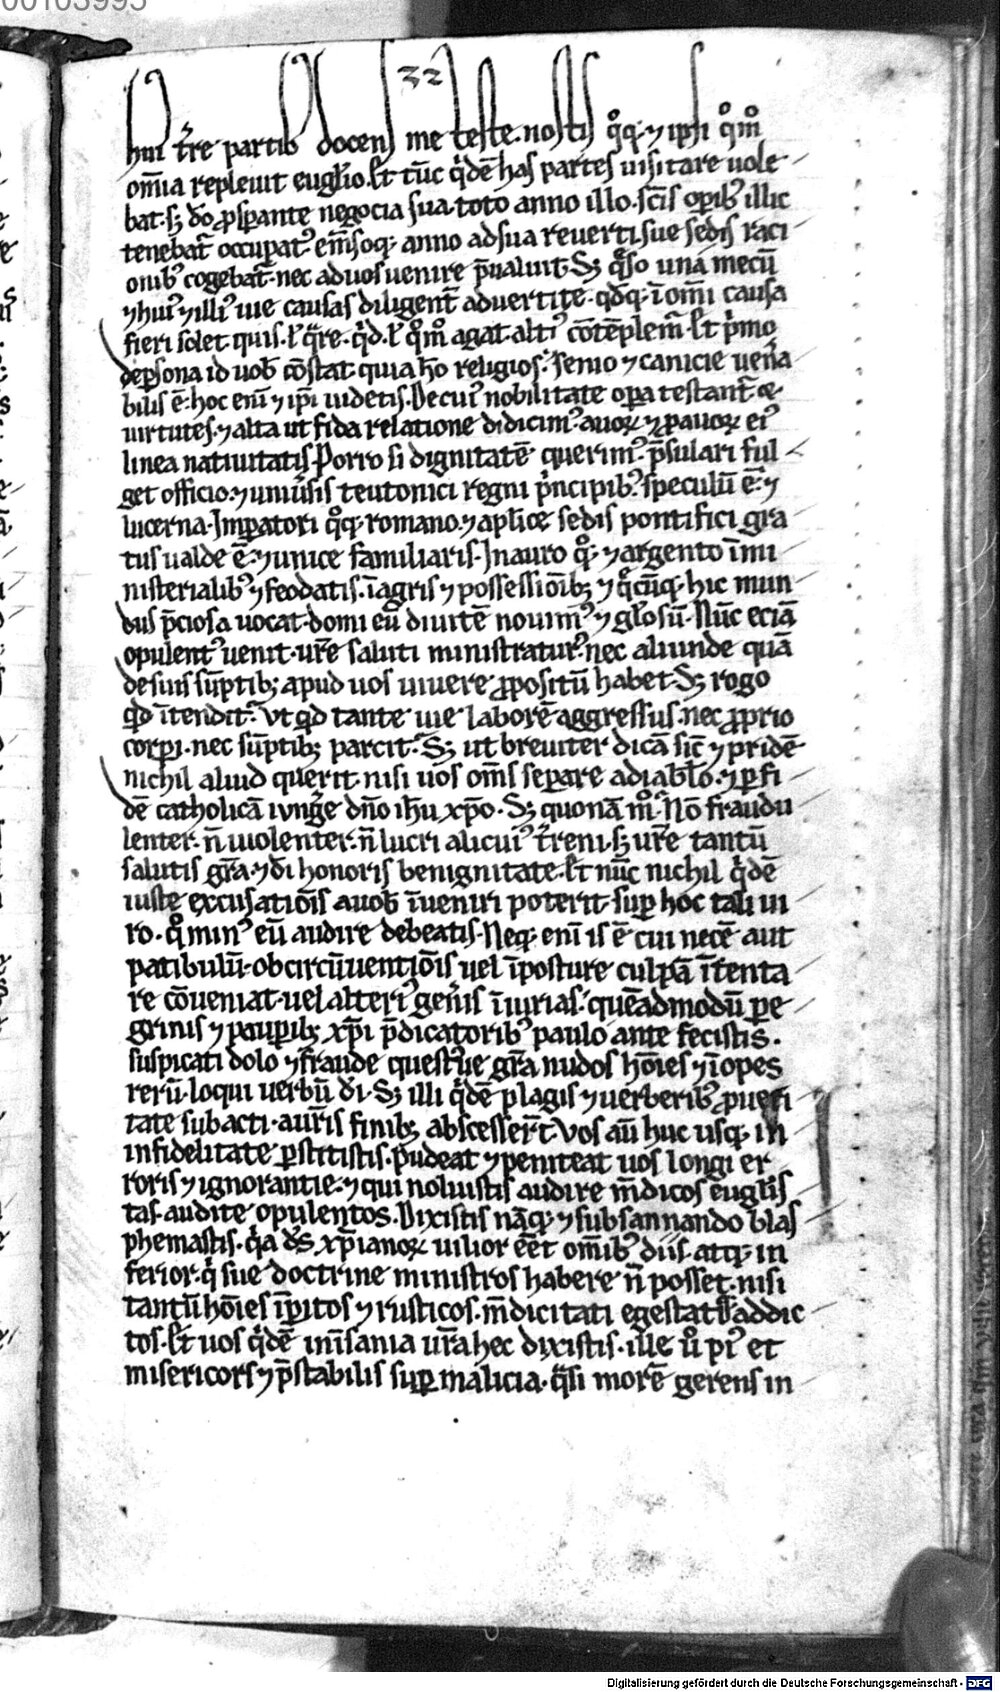 00103995
32
hui t̄re partib docens me teste. nostis q̊q; ⁊ ipsi q̊m̄
om̄ia repleuit eugl̄io. Et tūc q̇dē has partes uisitare uole
bat. sꝫ dō ꝓspante negocia sua. toto anno illo. sc̄is opib᷒ illic
tenebat᷑ occupat᷒ em̄soq; anno ad sua reuerti. sue sedis raci
onib᷒ cogebat᷑. nec ad uos uenire p̄ualuit. Sꝫ q̄so una mecū
⁊ hui᷒ ⁊ illi᷒ uie causas diligent᷑ aduertite. qd̄q; ī om̄i causa
fieri solet. quis. ł q̄re. q̇d. ł q̊m̊ agat. alti᷒ cōtēplem̄. Et ṗmo
de ꝑsona id uob̄ cōstat. quia hō religios᷒. senio ⁊ canicie uen̄a
bilis ē. hoc eni᷒ ⁊ ip̄i uidetis. De cui᷒ nobilitate opa testant᷑ ⁊
uirtutes. ⁊ alta ut fida relatione didicim᷒ auoꝝ ⁊ ꝓauoꝝ ei᷒
linea natiuitatis. Porro si dignitatē querim᷒. p̄sulari ful
get officio. ⁊ uniūsis teutonici regni ṗncipib᷒. speculū ē. ⁊
lucerna. Impatori q̊q; romano. ⁊ aplice sedis pontifici gra
tus ualde ē. ⁊ unice familiaris. In auro q̊. ⁊ argento ī mi
nisterialib᷒ ⁊ feodatis. ī agris ⁊ possessiōibꝫ ⁊ q̇cūq; hic mun
dus p̄ciosa uocat. domi eū diuitē nouim᷒ ⁊ gl̄osū. Nūc eciā
opulent᷒ uenit. ur̄e saluti ministratur᷒. nec aliunde quā
de suis sūptibꝫ apud uos uiuere ꝓpositū habet. Sꝫ rogo
qd ītendit. Vt qd tante uie laborē aggressus. nec ꝓprio
corpi. nec sūptibꝫ parcit. Sꝫ ut breuiter dicā sic̄ ⁊ pridē
nichil aliud querit. nisi uos om̄s separe a diabl̄o. ⁊ p fi
dē catholicā iungere dn̄o ih̄u xp̄o. Sꝫ quonā m̊. Nō fraudu
lenter. n̄ uiolenter. n̄ lucri alicui᷒ t̄reni. sꝫ ur̄e tantū
salutis gr̄a. ⁊ dī honoris benignitate. Et nūc nichil q̇dē
iuste excusatiōis a uob̄ īueniri poterit. sup hoc tali ui
ro. q̊ min᷒ eū audire debeatis. Neq; eni is ē cui necē aut
patibulū. ob circūuentiōis uel īposture culpā ītenta
re cōueniat. uel alteri᷒ gen̄is īiurias. quēadmodū pe
grinis ⁊ paupibꝫ xp̄i p̄dicatorib᷒ paulo ante fecistis.
suspicati dolo ⁊ fraude questue gr̄a nudos hōies ⁊ īopes
rerū. loqui uerbū dī. Sꝫ illi q̇dē plagis ⁊ uerberib᷒
tate subacti. a ur̄is finibꝫ abscesser̄t. Vos aū huc usq; in
infidelitate pstitistis. Pudeat ⁊ peniteat uos longi er
roris ⁊ ignorantie. ⁊ qui noluistis audire m̄dicos eugl̄is
tas. audite opulentos. Dixistis nāq; ⁊ subsannando blas
phemastis. q̇a d̄s xp̄ianoꝝ uilior eēt om̄ib᷒ diis. atq; in
ferior. q̇ sue doctrine ministros habere n̄ posset. nisi
tantū hōies īpitos ⁊ rusticos. m̄dicitati egestati addic
tos. Et uos q̇dē in insania ur̄a hec dixistis. ille ů pi᷒ et
misericors ⁊ p̄stabilis sup malicia. q̄si morē gerens in
Digitalisierung gefördert durch die Deutsche Forschungsgemeinschaft - DFG